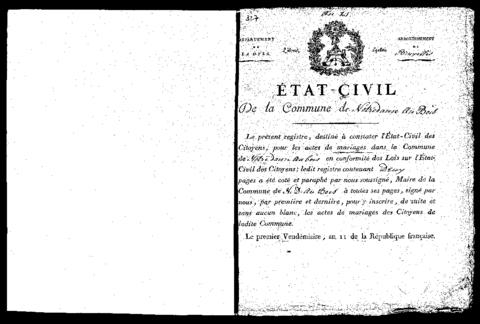 DÉPARTEMENT
DE
LA DYLE.
ARRONDISSEMENT
de
ÉTAT-CIVIL
De la Commune de Notre dame au Bois
Le présent registre, destiné à constater l'État-Civil des
Citoyens, pour les actes de mariages dans la Commune
de Notre dame au bois en conformité des Lois sur l'État
Civil des Citoyens; ledit registre contenant
pages a été coté et paraphé par nous soussigné, Maire de la
Commune de N. D. au Bois à toutes ses pages, signé par
nous, par première et dernière, pour y inscrire, de suite et
sans aucun blanc, les actes de mariages des Citoyens de
ladite Commune.
Le premier Vendémiaire, an 11 de la République française.